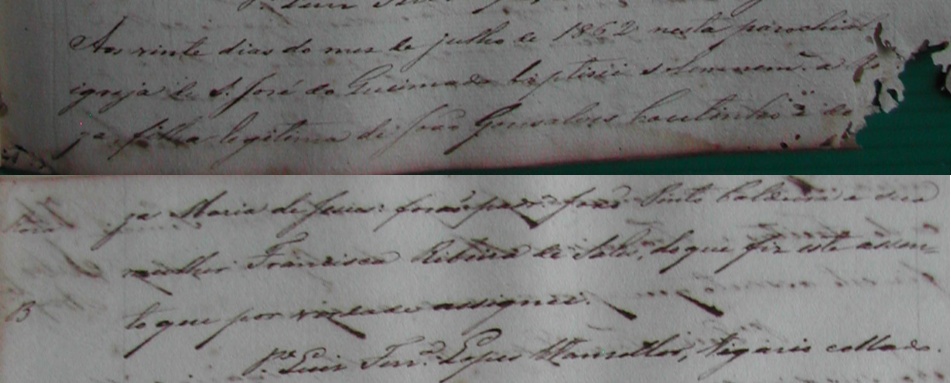 Aos vinte dias do mez de julho de 1862 nesta parochia
igreja de S. José do Queimado baptisei solemnem.e a
filha legitima de João Gonsalves Coutinho e de
ja Maria de Jesus: forão pad. João Pinto Caldeira e sua
mulher Francisca Ribeira de Sales, do que fiz este assen-
to que por verdade assignei.
P.e Luis Fer.a Lopes Wanzeller, Vigario collado.